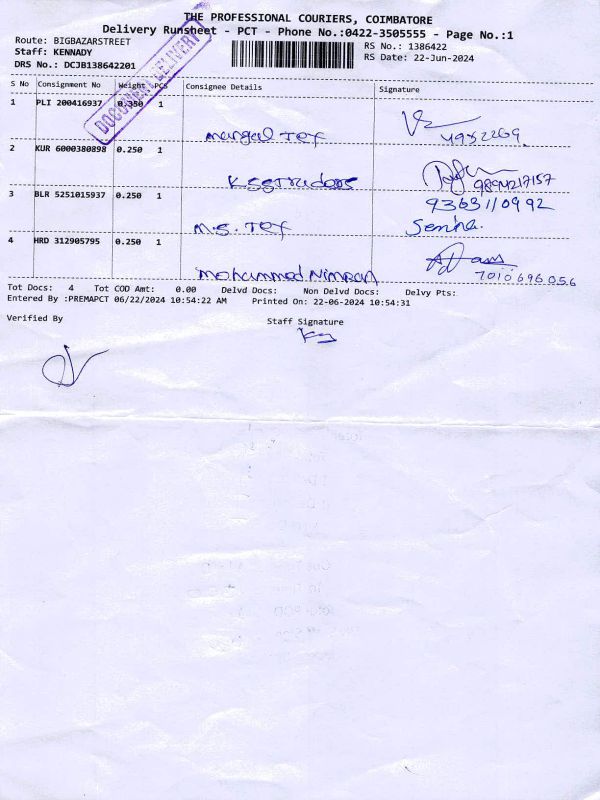 THE PROFESSIONAL COURIERS, COIMBATORE
Delivery Runsheet - PCT - Phone No.:0422-3505555 - Page No.:1
Route: BIGBAZARSTREET
Staff: KENNADY
DRS No.: DCJB138642201
RS No.: 1386422
RS Date: 22-Jun-2024
DOCUMENT DELIVERY
S No Consignment No Weight PCS Consignee Details Signature
1 PLI 200416937 0.350 1 Mangal Tex
2 KUR 6000380898 0.250 1 9894217157
3 BLR 5251015937 0.250 1 M.S. Tex 9363110992
4 HRD 312905795 0.250 1 Mohammed Nimran 7010696056
Tot Docs: 4 Tot COD Amt: 0.00 Delvd Docs: Non Delvd Docs: Delvy Pts:
Entered By :PREMAPCT 06/22/2024 10:54:22 AM Printed On: 22-06-2024 10:54:31
Verified By Staff Signature